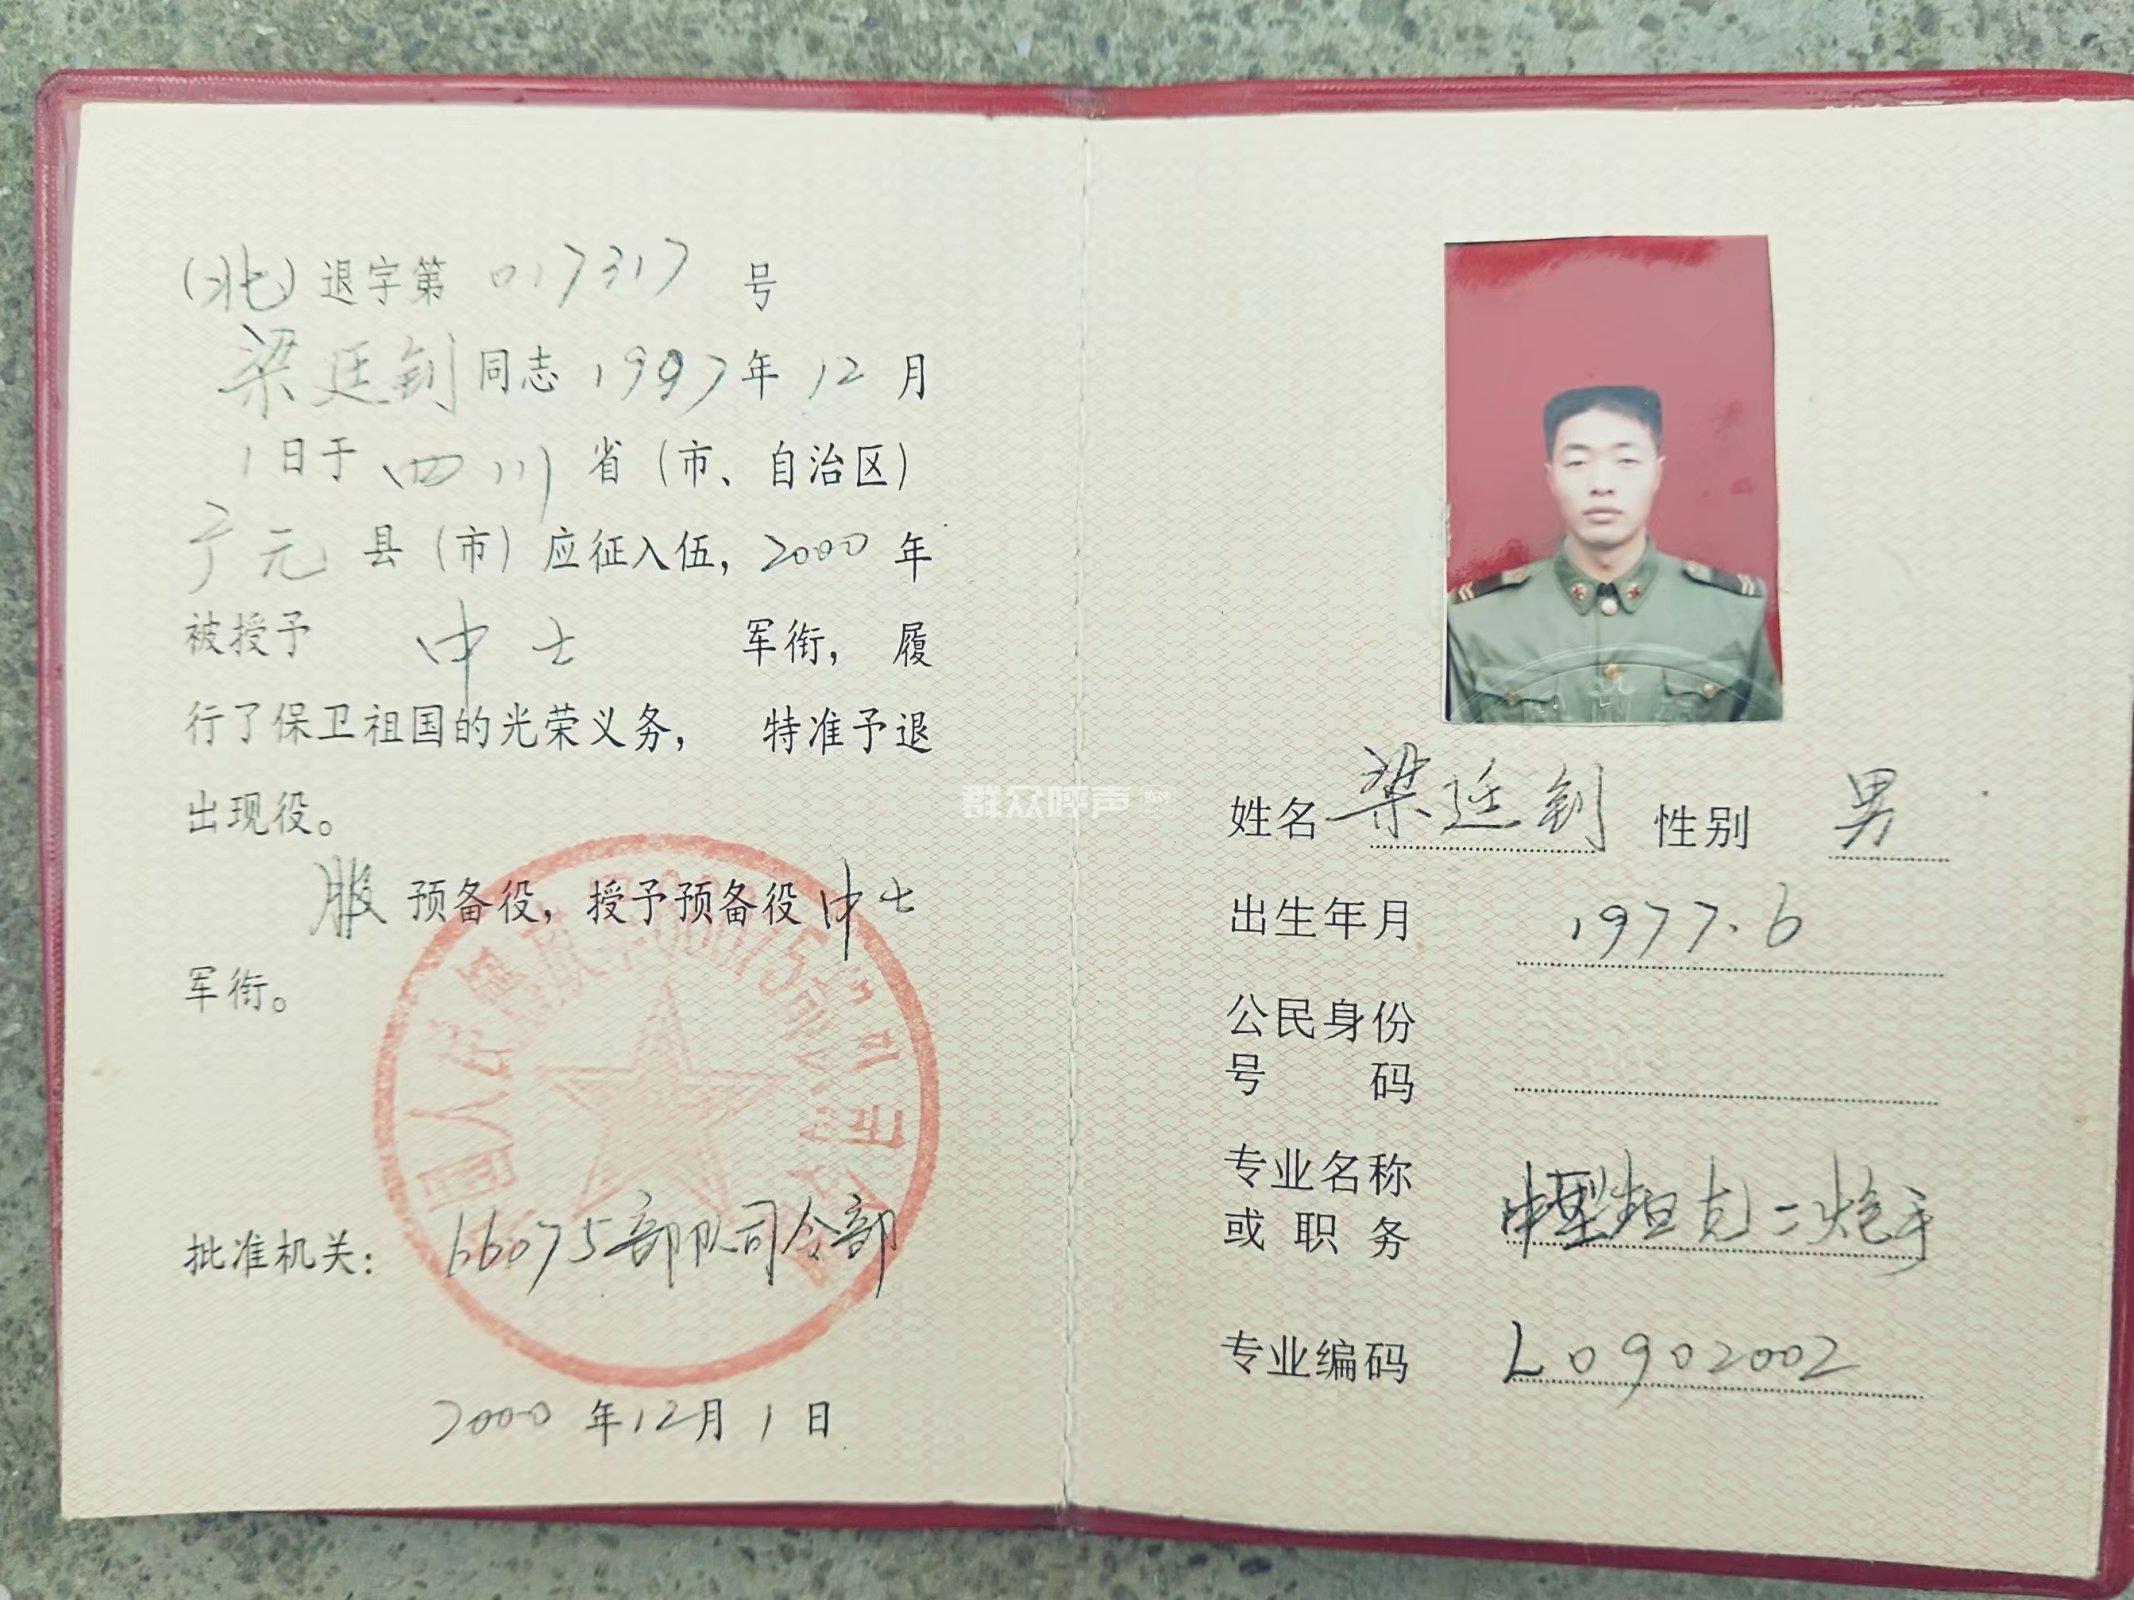 (北)退字第 017317 号
梁廷钊同志1997年12月
1日于四川省(市、自治区)
广元县(市)应征入伍，2000年
被授予 中士 军衔， 履
行了保卫祖国的光荣义务， 特准予退
出现役。
服预备役，授予预备役中士
军衔。
批准机关：66075部队司令部
2000年12月1日
群众呼声
姓名 梁廷钊 性别 男
出生年月 1977.6
公民身份
号 码
专业名称 中型坦克二炮手
或职务
专业编码 L0902002